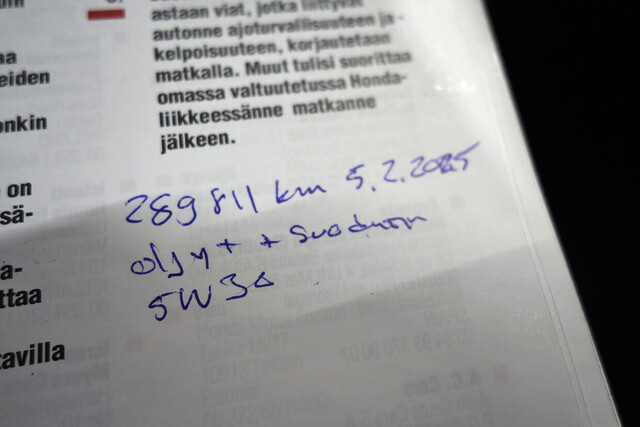 astaan viat, jotka liittyvät
autonne ajoturvallisuuteen ja -
kelpoisuuteen, korjautetaan
matkalla. Muut tulisi suorittaa
omassa valtuutetussa Honda-
liikkeessänne matkanne
jälkeen.
eiden
onkin
on
sä-
a-
ttaa
tavilla
289811 km 5.2.2025
öljyt +
5W30